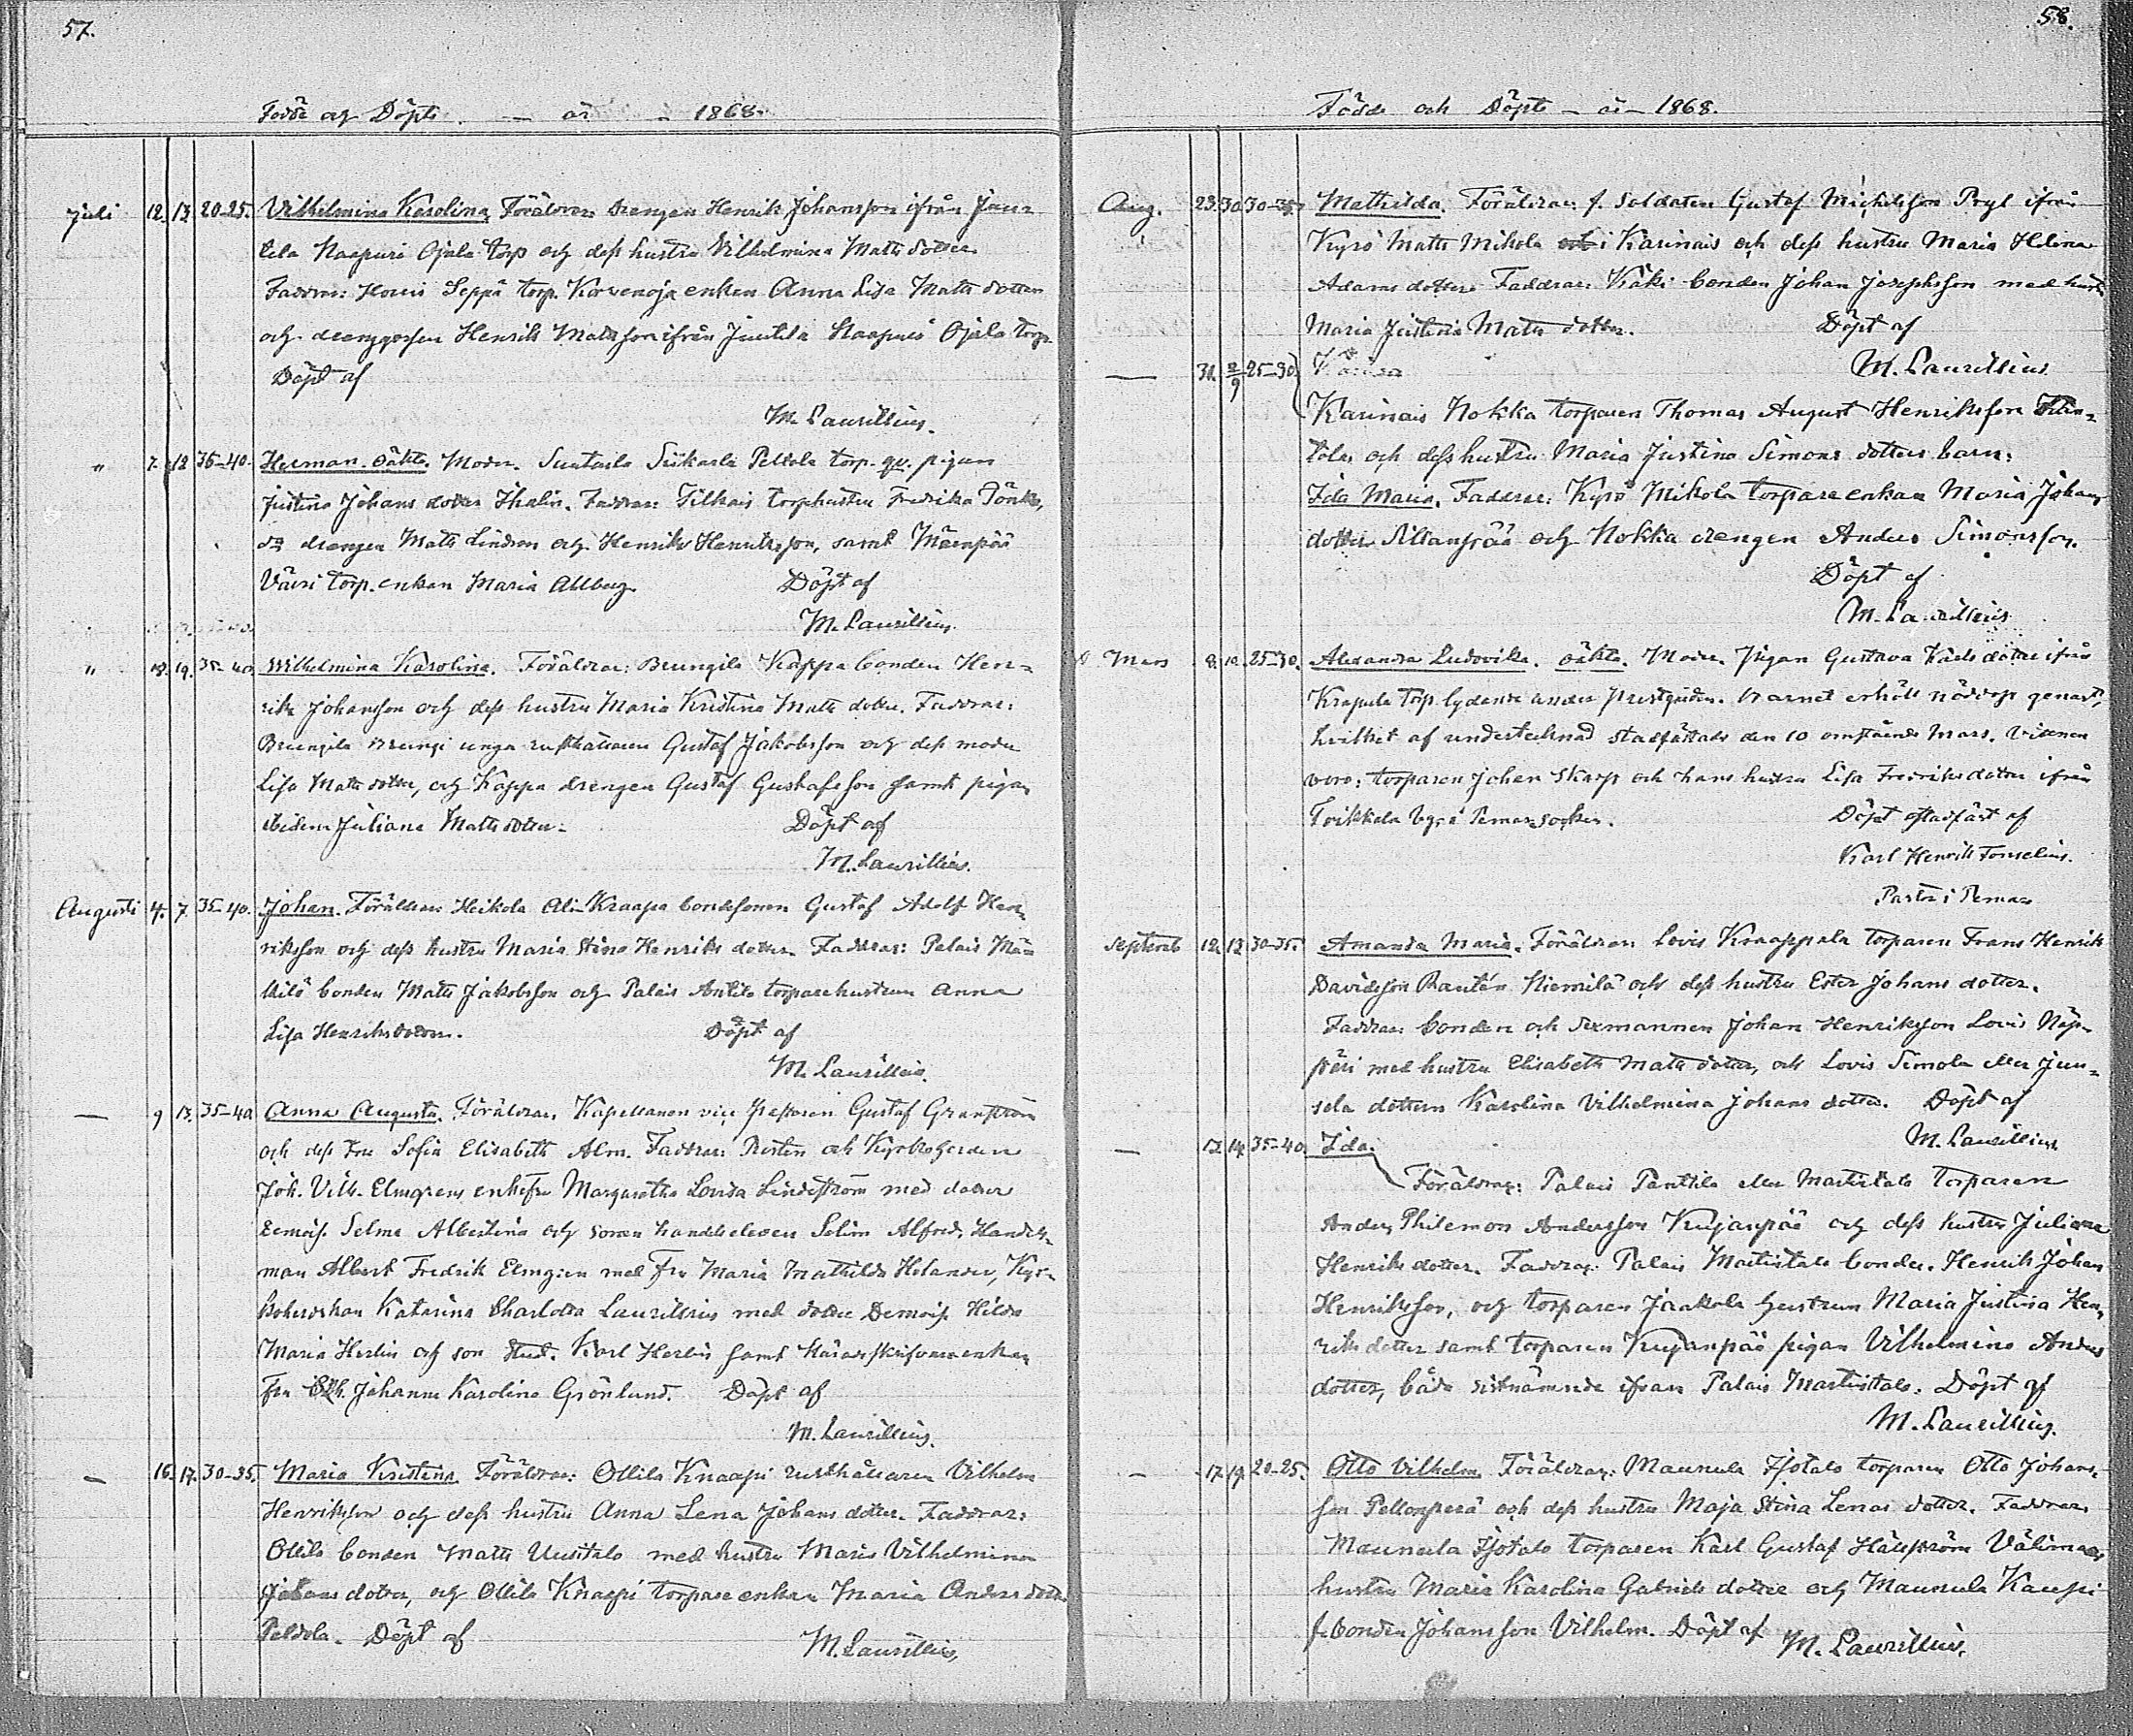 57.
Födde och Döpte — år — 1868.
Juli 12. 13. 20-25. Vilhelmina Karolina. Föräldrar: drengen Henrik Johansson ifrån Jun-
tila Naapuri Ojala torp och dess hustru Vilhelmina Matts dotter
Faddrar: Seppä torp. Korvenoja enkan Anna Lisa Matts dotter
och drenggossen Henrik Mattsson ifrån Juntila Naapuri Ojala torp
Döpt af
M. Laurillius.
" 7. 12 36-40. Herman. oäkta. Moder. Suutarla Siikarla Peldola torp. qv. pigan
Justina Johans dotter Thalin. Faddrar: Tilkais torphustru Fredrika Pönkä,
drengen Matts Lindroos och Henrik Henriksson, samt Mäenpää
Väiri torp. enkan Maria Ahlberg. Döpt af
M. Laurillius.
" 18. 19. 35-40. Wilhelmina Karolina. Föräldrar: Brungila Kappa bonden Hen-
rik Johansson och dess hustru Maria Kristina Matts dotter. Faddrar:
Brungila Brungi unga rusthållaren Gustaf Jakobsson och dess moder
Lisa Matts dotter, och Kappa drengen Gustaf Gustafsson samt pigan
ibidem Juliana Matts dotter. Döpt af
M. Laurillius.
Augusti 4. 7. 35-40. Johan. Föräldrar: Heikola Ali-Kraapa bondsonen Gustaf Adolf Hen-
riksson och dess hustru Maria Stina Henriks dotter. Faddrar: Palais Mä-
kilä bonden Matts Jakobsson och Palais Antila torparehustrun Anna
Lisa Henriksdotter. Döpt af
M. Laurillius.
— 9 13. 35-40 Anna Augusta. Föräldrar: Kapellanen vice Prosten Gustaf Granström
och dess Fru Sofia Elisabeth Alm. Faddrar: Prosten och Kyrkoherden
Joh. Vilh. Elmgrens enkefru Margaretha Lovisa Lindström med dotter
Demois. Selma Albertina och sonen handelseleven Selim Alfred, Handels-
man Albert Fredrik Elmgren med Fru Maria Mathilda Helander, Kyr-
koherdskan Katarina Charlotta Laurillius med dotter Demois. Hilda
Maria Herlin och son Stud. Karl Herlin samt Häradsskrifvareenkan
Fru Johanna Karolina Grönlund. Döpt af
M. Laurillius.
— 16. 17. 30-35. Maria Kristina. Föräldrar: Ollila Knaapi rusthållaren Vilhelm
Henriksson och dess hustru Anna Lena Johans dotter. Faddrar:
Ollila bonden Matts Uusitalo med hustru Maria Vilhelmina
Johans dotter, och Ollila Knaapi torpare enkan Maria Anders dotter
Peldola. Döpt af M. Laurillius.
58.
Födde och Döpte — år — 1868.
Aug. 23. 30. 30-35. Mathilda. Föräldrar: f. Soldaten Gustaf Michelsson Pryl ifrån
Kyrö Matts Mikola i Karinais och dess hustru Maria Helena
Adams dotter. Faddrar: Käki bonden Johan Josephsson med hustru
Maria Justina Matts dotter. Döpt af
M. Laurillius.
— 31. 2/9 25-30.
Karinais Nokka torparen Thomas August Henriksson
tolas och dess hustru Maria Justina Simons dotters barn:
Ida Maria. Faddrar: Kyrö Mikola torpare enkan Maria Johans
dotter Sillanpää och Nokka drengen Anders Simonsson.
Döpt af
M. Laurillius
Mars 8. 10. 25-30. Alexandra Ludovika. oäkta. Moder. Pigan Gustava Karls dotter ifrån
Krapula torp lydande under Prestgården. Barnet erhöll nöddop genast,
hvilket af undertecknad stadfästades den 10 omstående Mars. Vittnen
voro: torparen Johan Skarp och hans hustru Lisa Fredriksdotter ifrån
Tvikkala by i Pemar socken. Döpt stadfäst af
Karl Henrik Fonselius.
Pastor i Pemar
Septemb 12. 13 30-35. Amanda Maria. Föräldrar: Lovis Knaappala torparen Frans Henrik
Davidsson Rantén Niemilä och dess hustru Ester Johans dotter.
Faddrar: bonden och Sexmannen Johan Henriksson Lovis Näp-
päri med hustru Elisabeth Matts dotter, och Lovis Simola eller Jun-
sela dottern Karolina Vilhelmina Johans dotter. Döpt af
M. Laurillius
— 13. 14. 35-40. Ida.
Föräldrar: Palais Panttila eller Martistalo torparen
Anders Philemon Andersson Kujanpää och dess hustru Juliana
Henriks dotter. Faddrar: Palais Martistalo bonden Henrik Johan
Henriksson, och torparen Jaakola hustrun Maria Justina Hen-
riks dotter samt torparen Kujanpää pigan Vilhelmina Anders
dotter, båda sistnämnde ifrån Palais Martistalo. Döpt af
M. Laurillius.
— 17. 19. 20-25. Otto Vilhelm. Föräldrar: Maunula Isotalo torparen Otto Johans-
son Pellonperä och dess hustru Maja Stina Lenas dotter. Faddrar:
Maunula Isotalo torparen Karl Gustaf Hällström Välimaas
hustru Maria Karolina Gabriels dotter och Maunula Kaupi
f. bonden Johansson Vilhelm. Döpt af M. Laurillius.